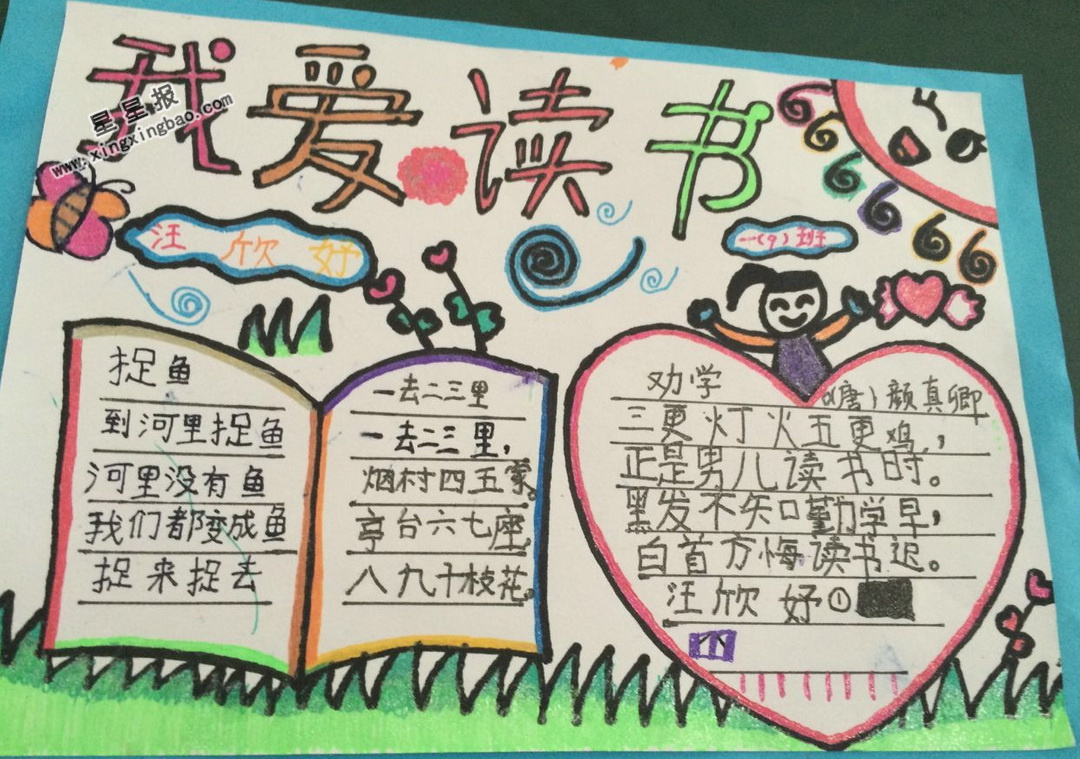 我爱读书
星星报
www.xingxingbao.com
汪欣妤
一(9)班
捉鱼
到河里捉鱼
河里没有鱼
我们都变成鱼
捉来捉去
一去二三里
一去二三里，
烟村四五家。
亭台六七座，
八九十枝花。
劝学
(唐)颜真卿
三更灯火五更鸡，
正是男儿读书时。
黑发不知勤学早，
白首方悔读书迟。
汪欣妤①